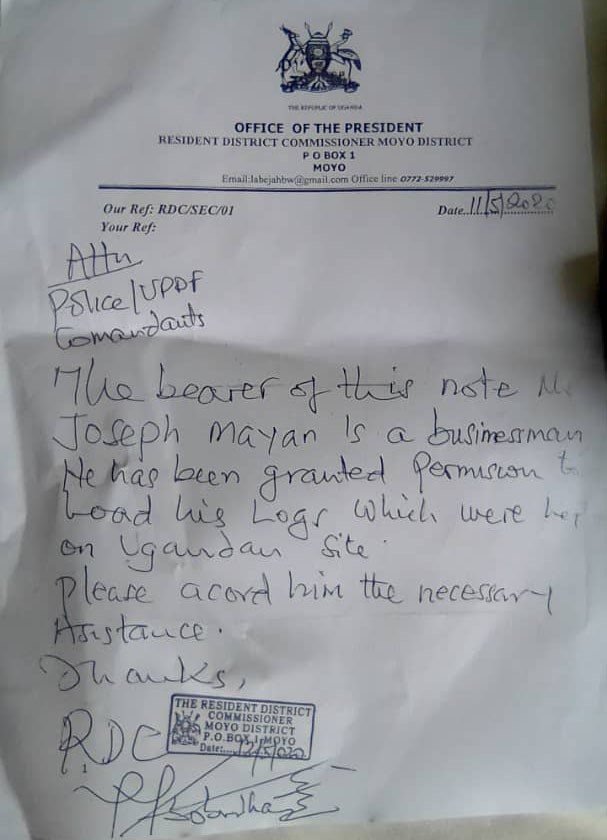 THE REPUBLIC OF UGANDA
OFFICE OF THE PRESIDENT
RESIDENT DISTRICT COMMISSIONER MOYO DISTRICT
P O BOX 1
MOYO
Email:labejahbw@gmail.com Office line 0772-529997
Our Ref: RDC/SEC/01
Date..11/5/2020
Your Ref:
Attn
Police/UPDF
Comandants
The bearer of this note
Joseph Mayan Is a businessman
He has been granted Permision
Load his Logs which were
on Ugandan site.
Please acord him the necessary
Asistance.
Thanks,
RDC
THE RESIDENT DISTRICT
COMMISSIONER
MOYO DISTRICT
P.O.BOX 1, MOYO
Date:....12/5/2020